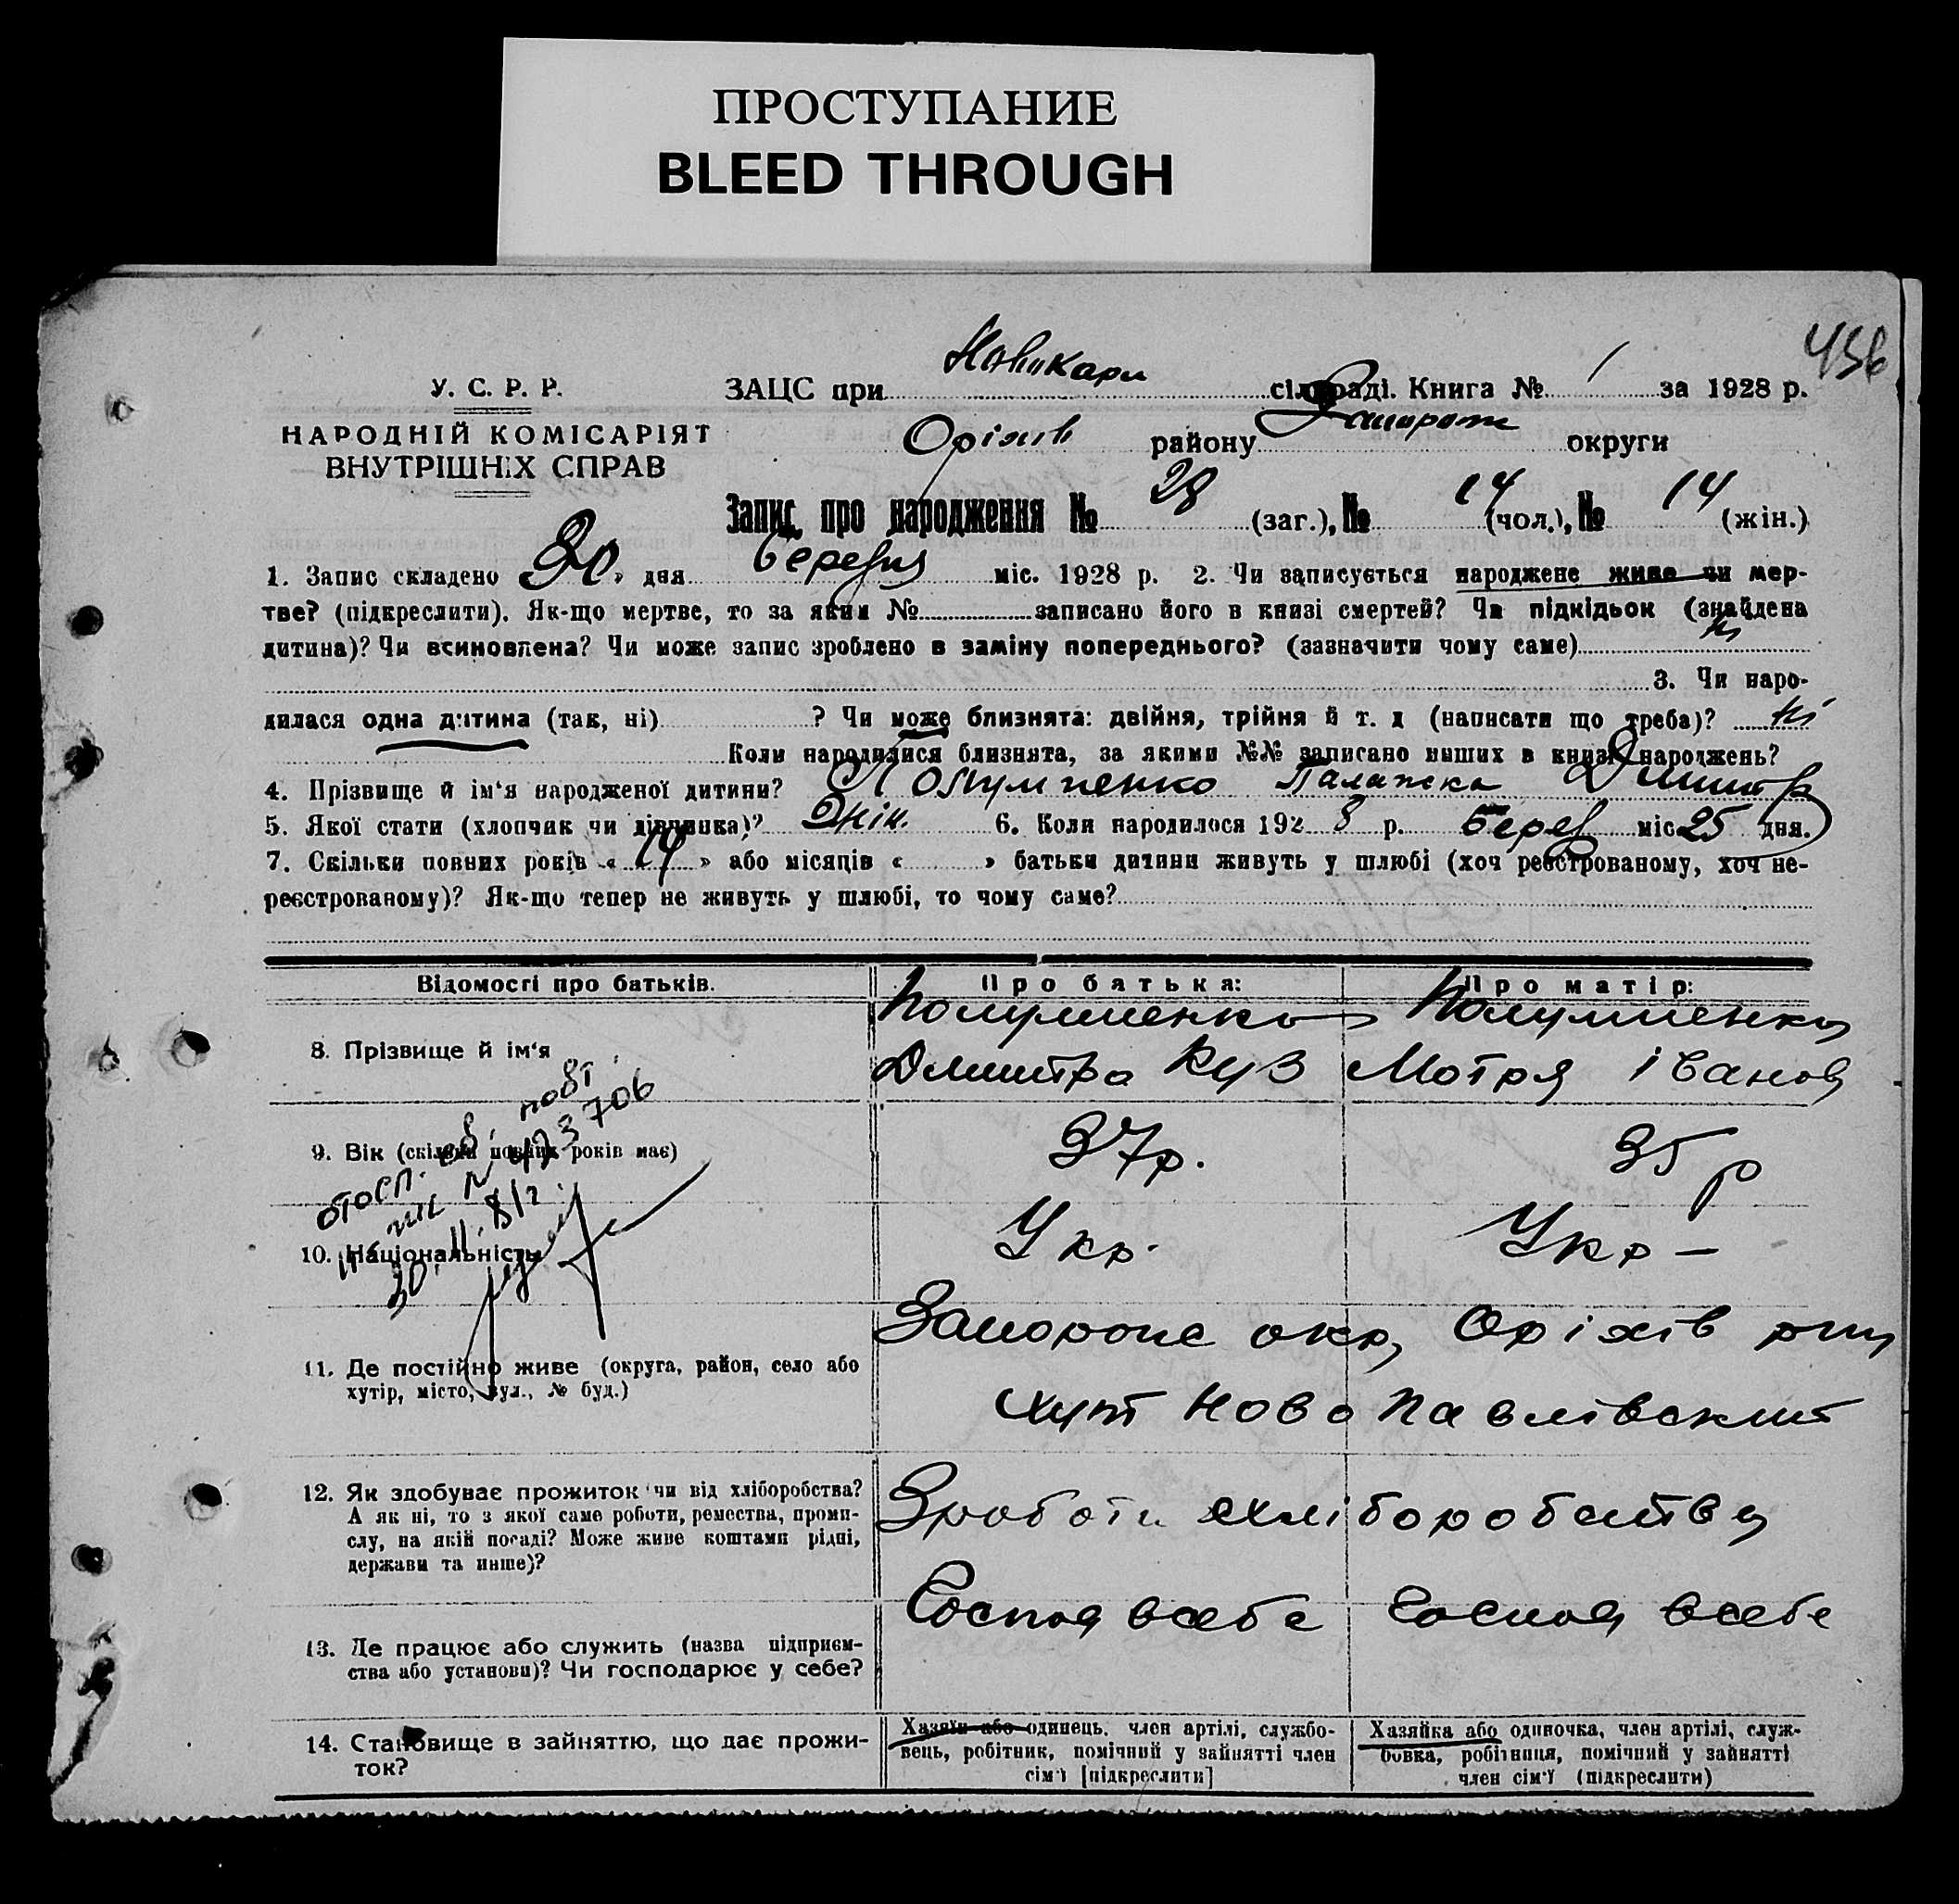 ПРОСТУПАНИЕ
BLEED THROUGH
456
У. С. Р. Р.
НАРОДНІЙ КОМІСАРІЯТ
ВНУТРІШНІХ СПРАВ
ЗАЦС при Новокарл сільраді. Книга № 1 за 1928 р.
Оріхів району Запорож округи
Запис про народження № 28 (заг.), № 14 (чол.), № 14 (жін.)
1. Запис складено 30 » дня березня міс. 1928 р. 2. Чи записується народжене живе чи мер-
тве? (підкреслити). Як-що мертве, то за яким № записано його в книзі смертей? Чи підкідьок (знайдена
дитина)? Чи всиновлена? Чи може запис зроблено в заміну попереднього? (зазначити чому саме) ні
3. Чи наро-
дилася одна дитина (так, ні) ? Чи може близнята: двійня, трійня й т. д (написати що треба)? ні
Коли народилися близнята, за якими №№ записано инших в книзі народжень?
4. Прізвище й ім'я народженої дитини? Палажка Дмитр
5. Якої стати (хлопчик чи дівчинка)? жін. 6. Коли народилося 192 8 р. Берез міс 25 дня.
7. Скільки повних років « 14 » або місяців « » батьки дитини живуть у шлюбі (хоч реєстрованому, хоч не-
реєстрованому)? Як-що тепер не живуть у шлюбі, то чому саме?
Відомості про батьків. Про батька: Про матір:
8. Прізвище й ім'я
Дмитро Куз Мотря Іванов
повт
9. Вік (скільки повних років має) 37р. 35 р
10. Національність Укр. Укр –
11. Де постійно живе (округа, район, село або
хутір, місто, вул., № буд.)
Запорожс окр, Оріхів рну
хут Ново Павлівский
12. Як здобуває прожиток чи від хліборобства?
А як ні, то з якої саме роботи, ремества, проми-
слу, на якій посаді? Може живе коштами рідні,
держави та инше)?
Зроботи хліборобства
13. Де працює або служить (назва підприєм-
ства або установи)? Чи господарює у себе?
Господ всебе Господ всебе
14. Становище в зайняттю, що дає прожи-
ток?
Хазяїн або одинець, член артілі, службо-
вець, робітник, помічний у зайнятті член
сім'ї [підкреслити]
Хазяйка або одиночка, член артілі, служ-
бовка, робітниця, помічний у зайнятті
член сім'ї (підкреслити)